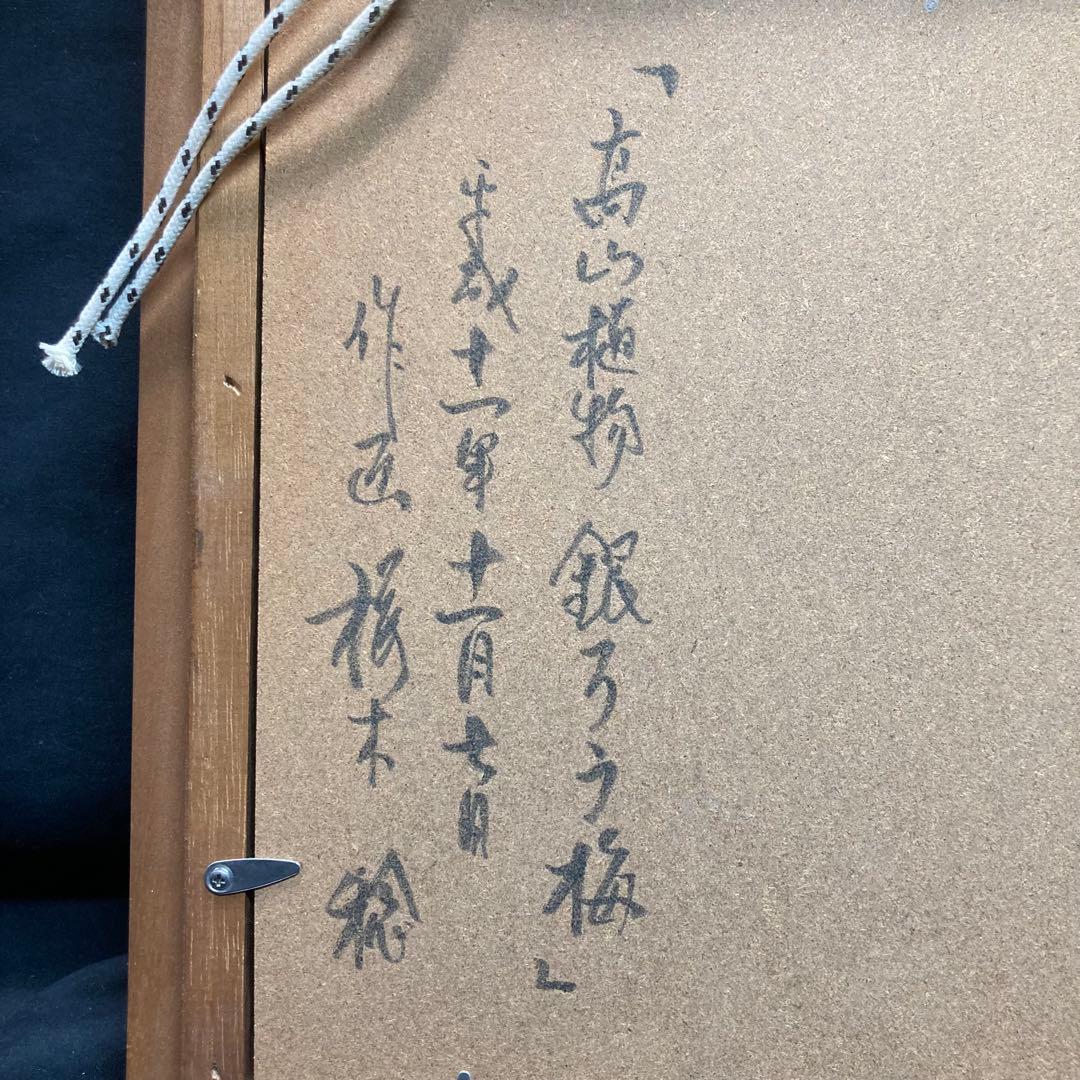 「高山植物 銀ろう梅」
平成十一年十一月七日
作匠 桜木 稔